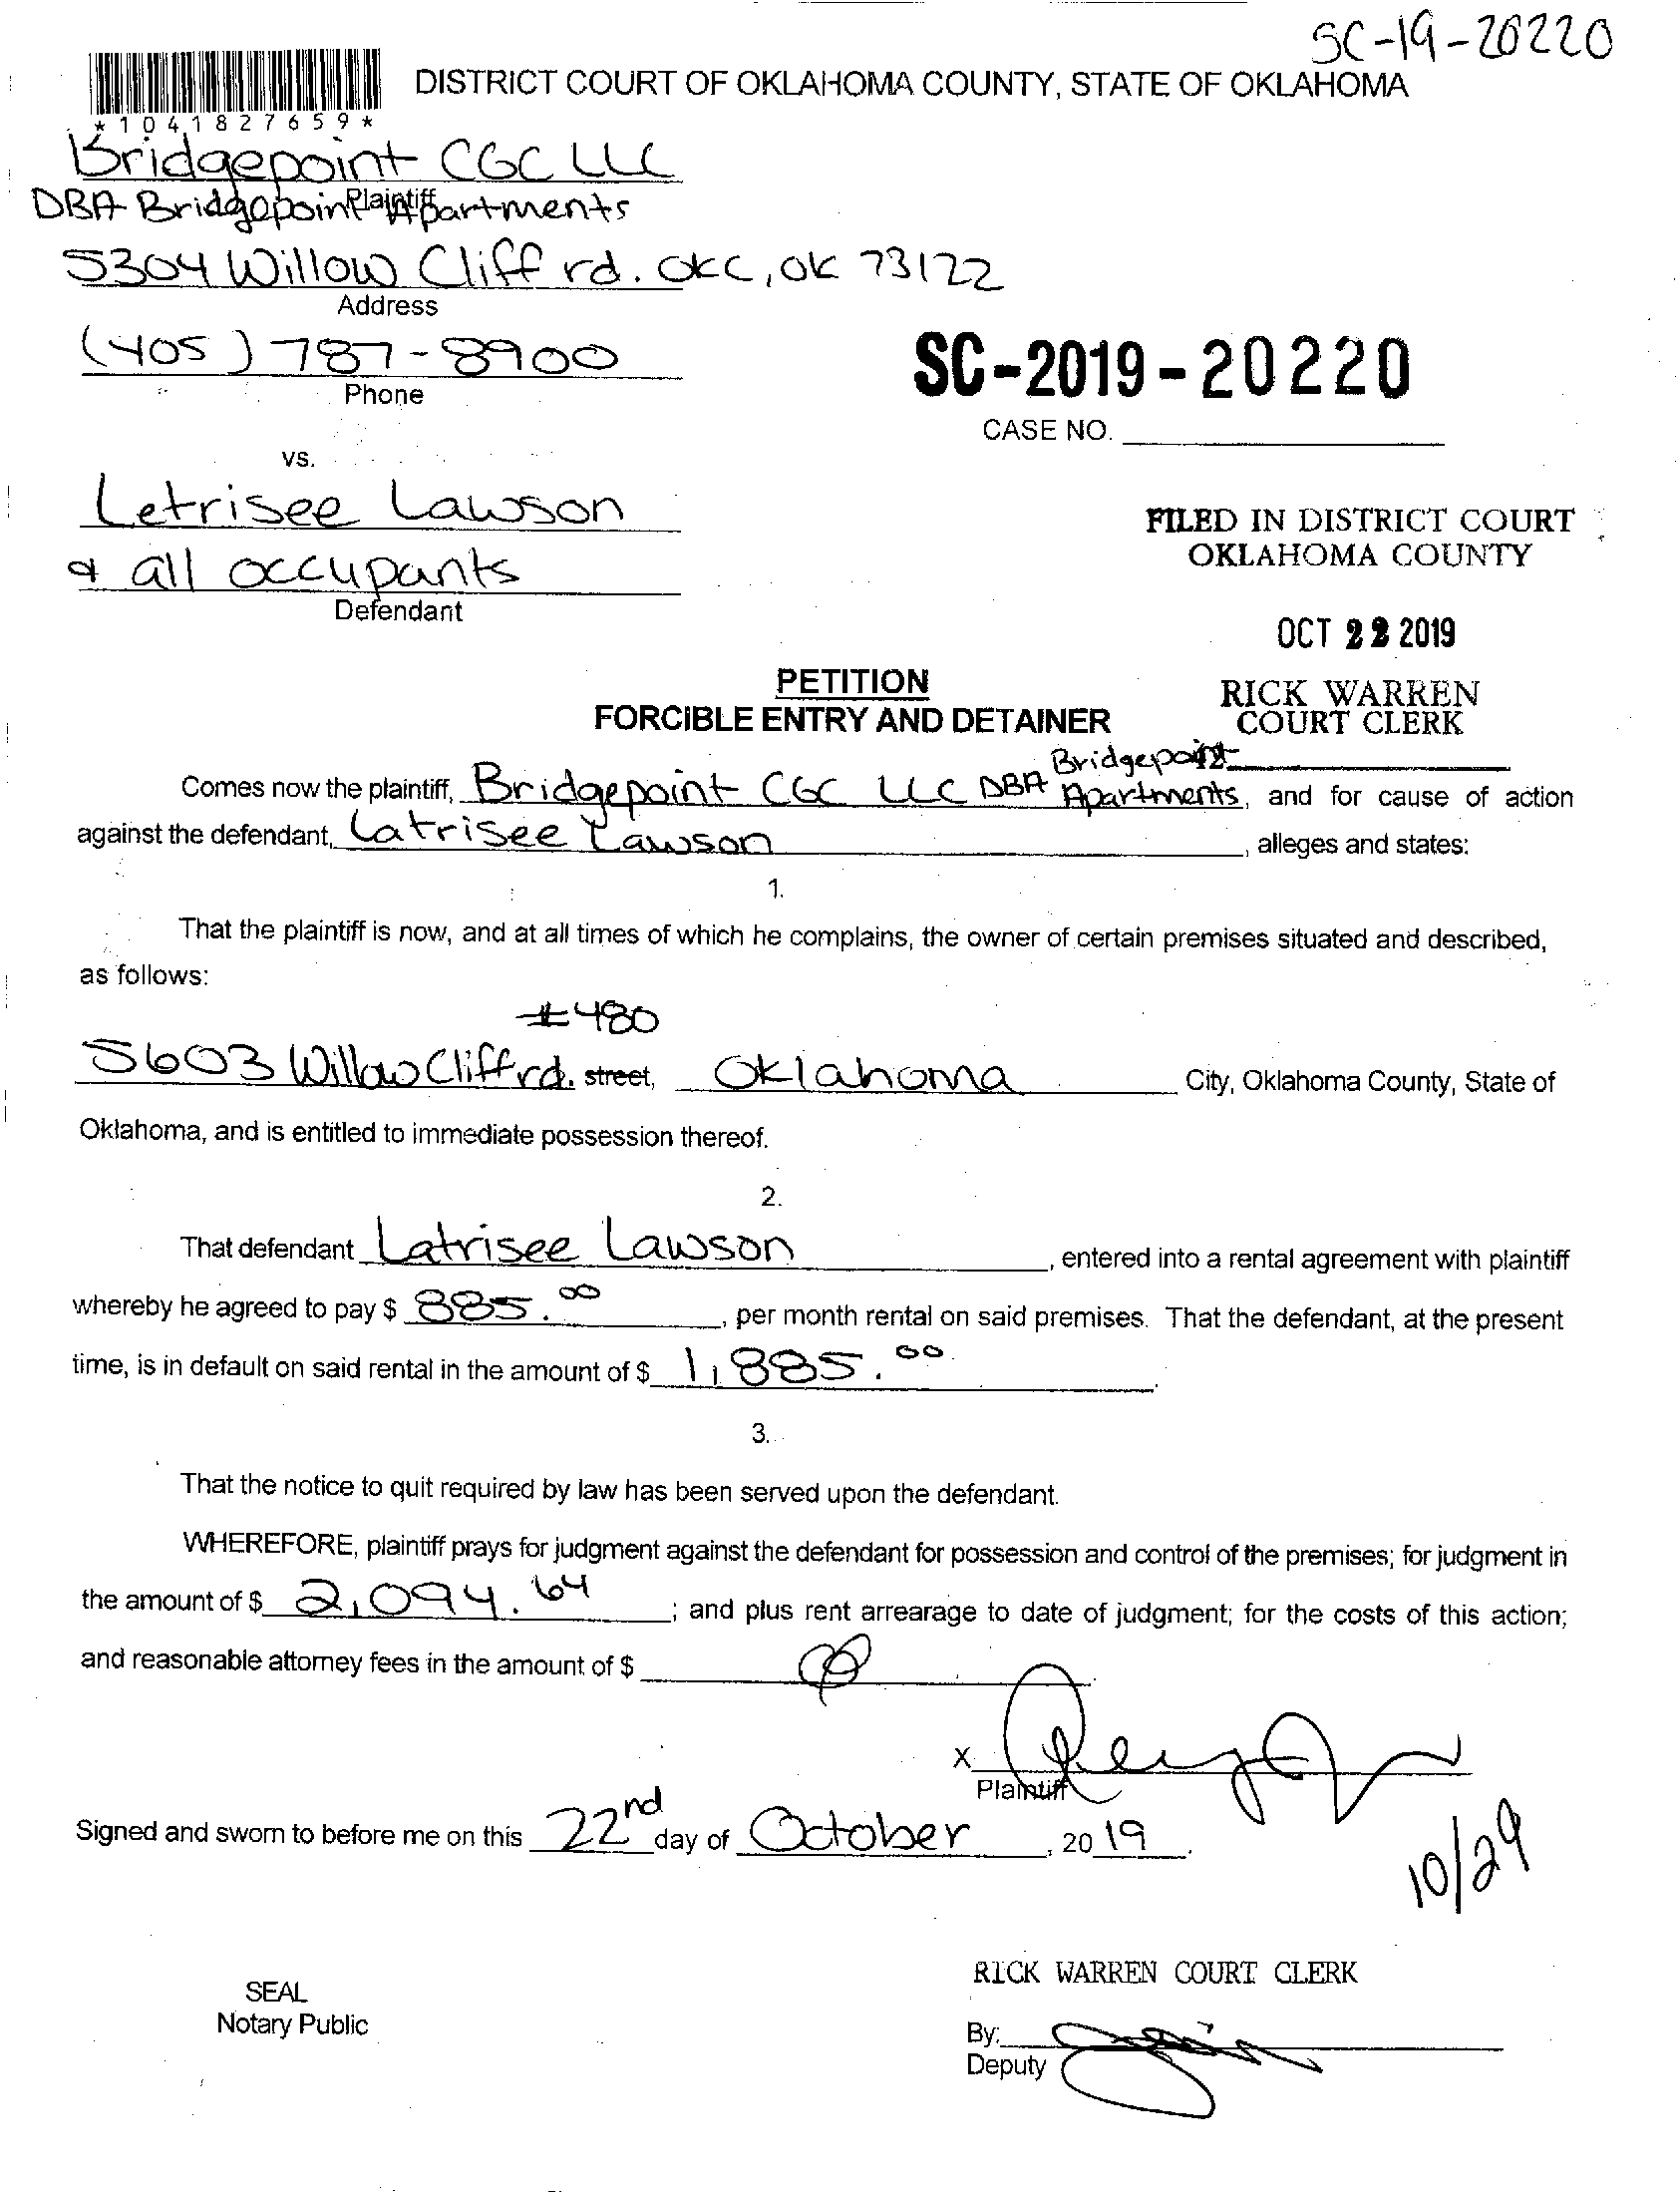 SC-19-20220
DISTRICT COURT OF OKLAHOMA COUNTY, STATE OF OKLAHOMA
*1041827659*
Bridgepoint CGC LLC
Plaintiff
DBA Bridgepoint Apartments
5304 Willow Cliff rd. OKC, OK 73122
Address
(405) 787-8900
Phone
SC-2019-20220
CASE NO.
vs.
Letrisee Lawson
& all occupants
Defendant
FILED IN DISTRICT COURT
OKLAHOMA COUNTY
OCT 22 2019
RICK WARREN
COURT CLERK
PETITION
FORCIBLE ENTRY AND DETAINER
Comes now the plaintiff, Bridgepoint CGC LLC DBA Bridgepoint Apartments, and for cause of action
against the defendant, Latrisee Lawson, alleges and states:
1.
That the plaintiff is now, and at all times of which he complains, the owner of certain premises situated and described,
as follows:
#480
5603 Willow Cliff rd. street, Oklahoma City, Oklahoma County, State of
Oklahoma, and is entitled to immediate possession thereof.
2.
That defendant Latrisee Lawson, entered into a rental agreement with plaintiff
whereby he agreed to pay $ 885.00, per month rental on said premises. That the defendant, at the present
time, is in default on said rental in the amount of $ 1,885.00.
3.
That the notice to quit required by law has been served upon the defendant.
WHEREFORE, plaintiff prays for judgment against the defendant for possession and control of the premises; for judgment in
the amount of $ 2,094.64; and plus rent arrearage to date of judgment; for the costs of this action;
and reasonable attorney fees in the amount of $
X
Plaintiff
Signed and sworn to before me on this 22nd day of October, 2019.
10/29
RICK WARREN COURT CLERK
SEAL
Notary Public
By:
Deputy